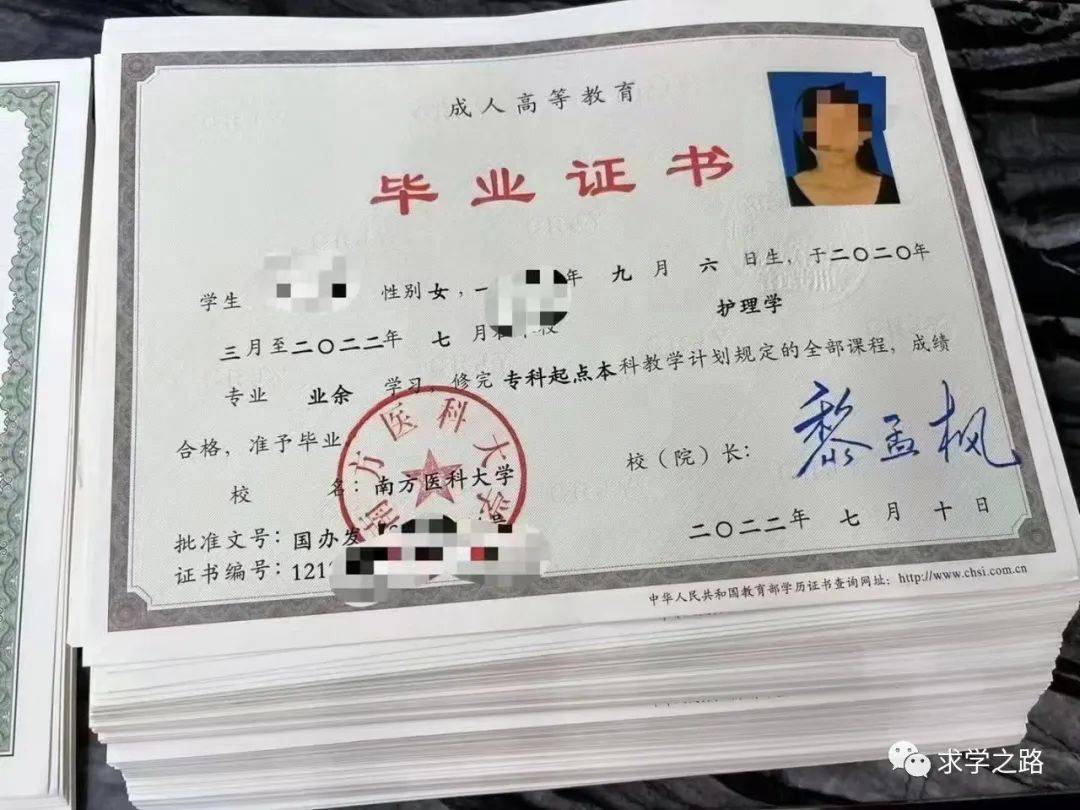 成人高等教育
毕业证书
学生 性别女，一 年九月六日生，于二〇二〇年
三月至二〇二二年七月 护理学
专业 业余 学习，修完专科起点本科教学计划规定的全部课程，成绩
合格，准予毕业
校（院）长：黎孟枫
校 名：南方医科大学
南方医科大学
批准文号：国办发
二〇二二年七月十日
证书编号：121
中华人民共和国教育部学历证书查询网址：http://www.chsi.com.cn
求学之路